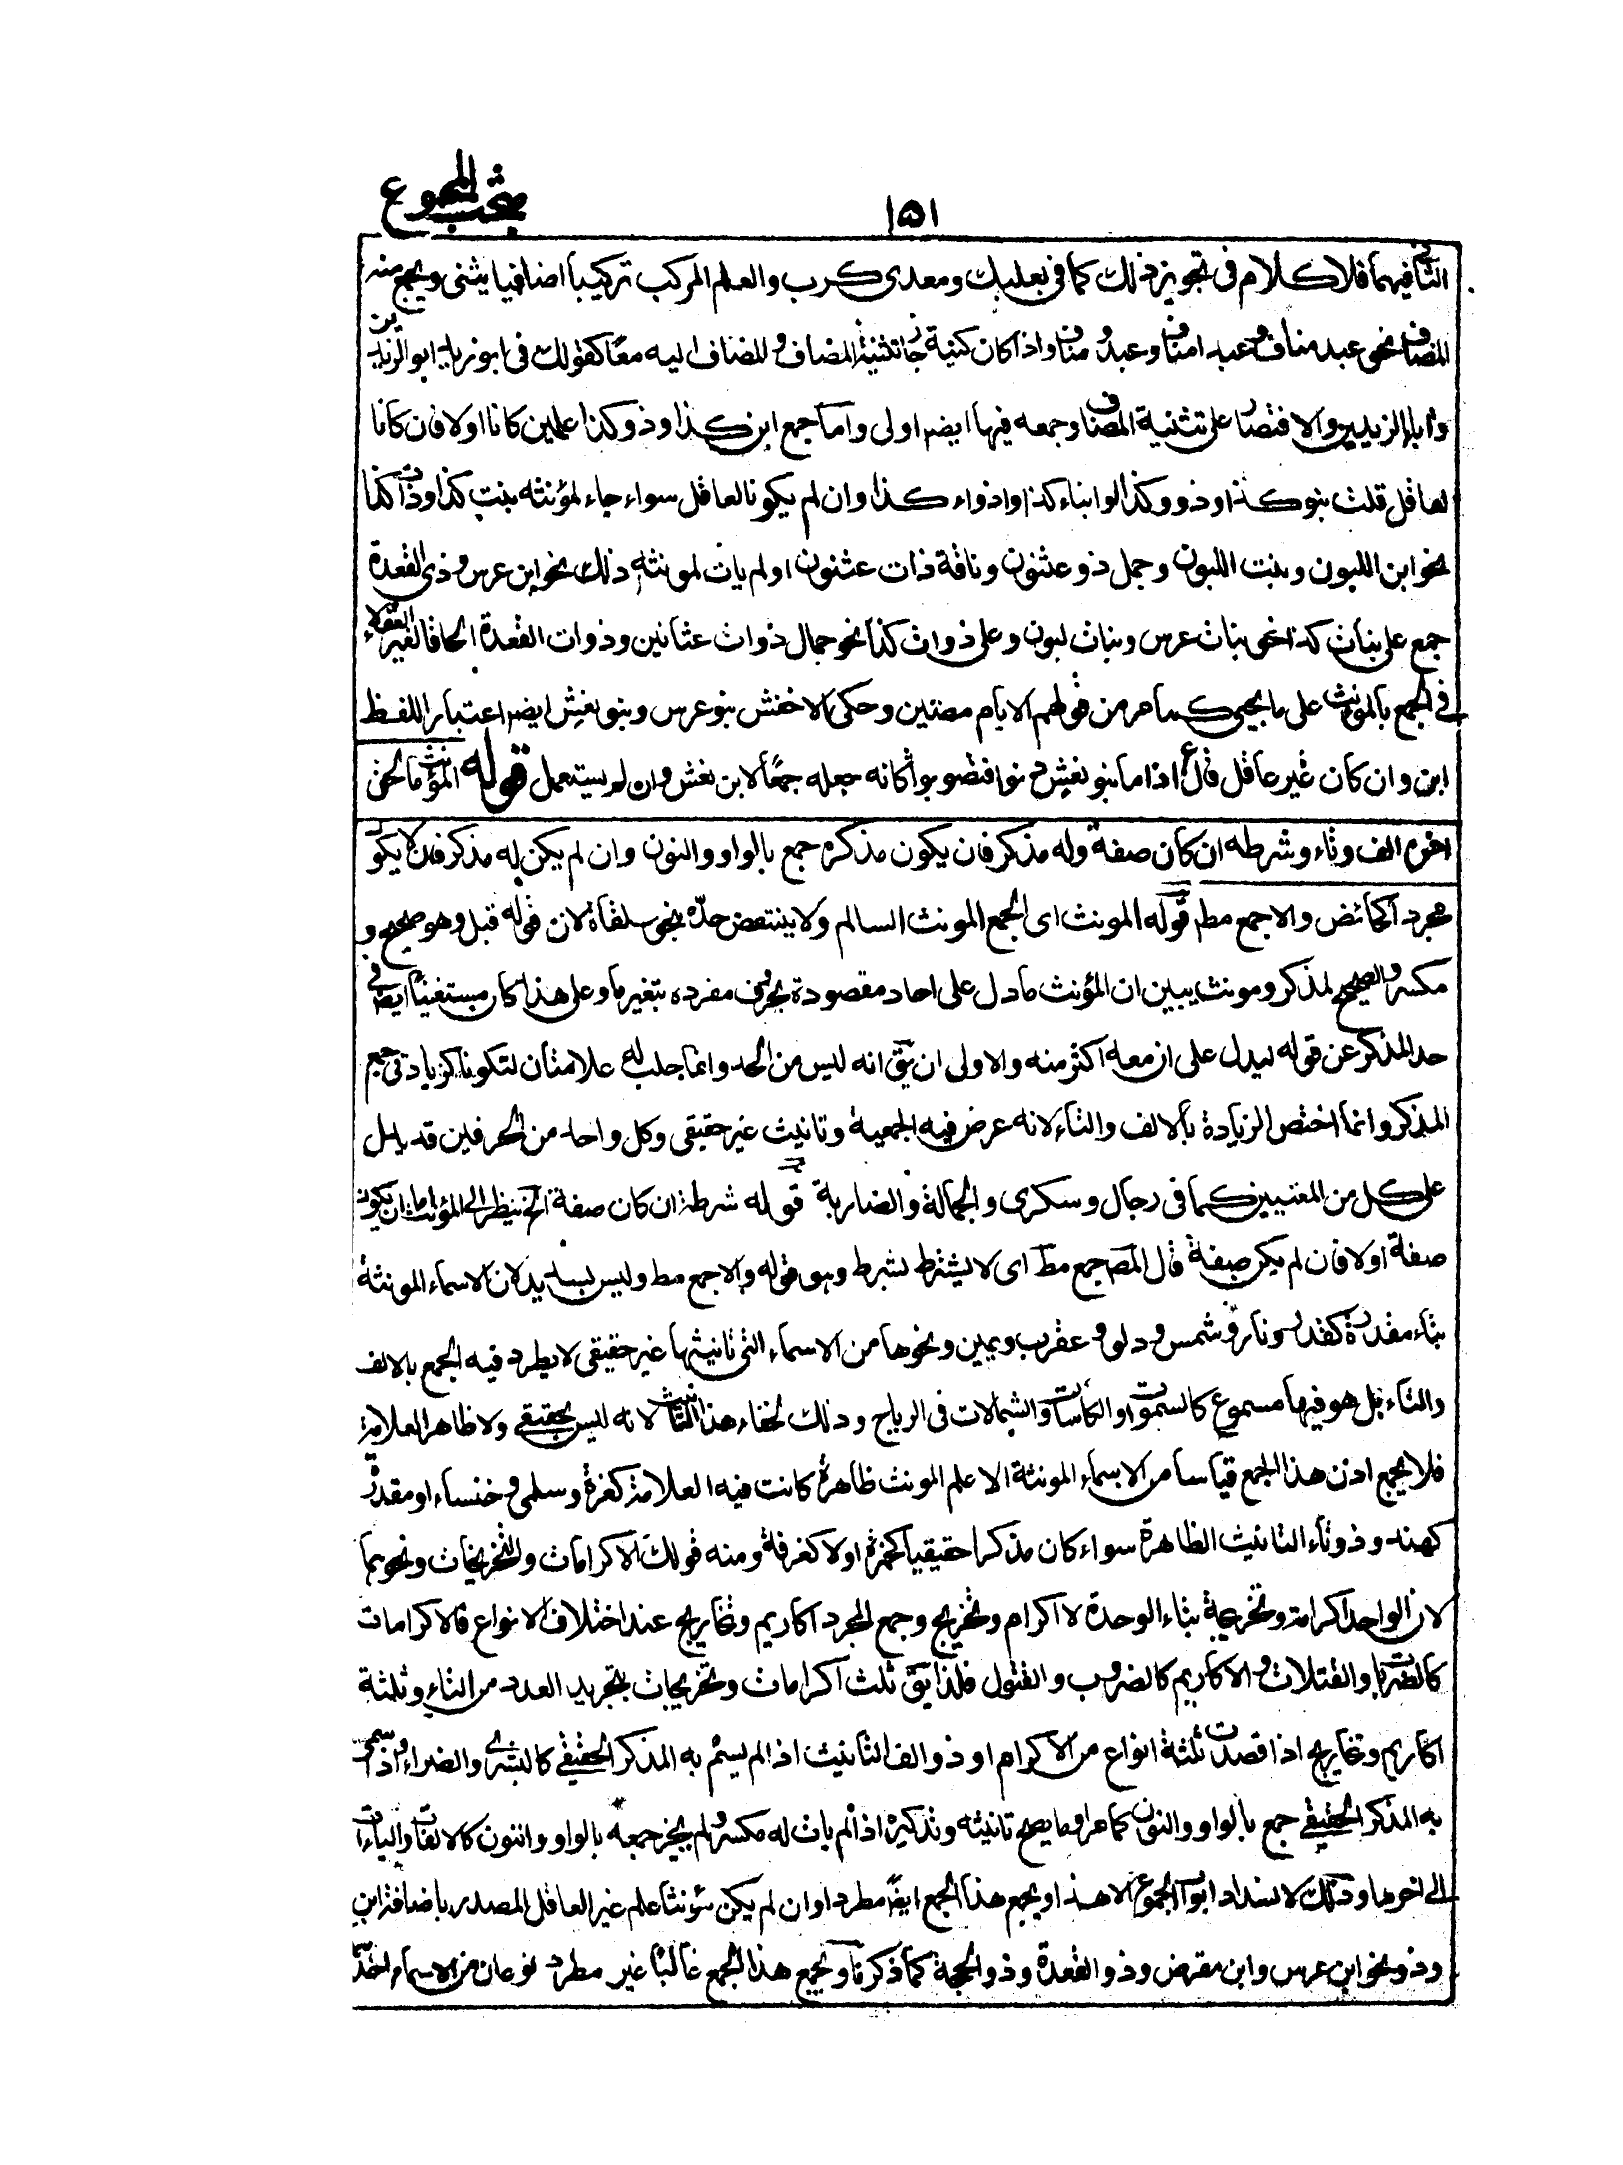 ١٥١
مبحث المجموع
الثانی فیهما فلا کلام فی تجویز ذلک کما فی بعلبک ومعدی کرب والعلم المرکب ترکیبا اضافیا یثنی ویجمع منه
المضاف نحو عبد مناف وعبدا مناف وعبدو مناف واذا کان کنیة جاز تثنیة المضاف والمضاف الیه معًا کقولک فی ابو زید ابو الزیدین
وآباء الزیدین والاقتصار علی تثنیة المضاف وجمعه فیها ایضا اولی واما جمع ابن کذا وذو کذا علمین کانا اولا فان کانا
لعاقل قلت بنو کذا وذوو کذا او ابناء کذا واذواء کذا وان لم یکونا لعاقل سواء جاء لمؤنثه بنت کذا وذات کذا
نحو ابن اللبون وبنت اللبون وجمل ذو عثنون وناقة ذات عثنون او لم یات لمونثه ذلک نحو ابن عرس وذی القعدة
جمع علی بنات کذا نحو بنات عرس وبنات لبون وعلی ذوات کذا نحو جمال ذوات عثانین وذوات القعدة الحاقا لغیر العقلاء
فی الجمع بالمونث علی ما یجیء کما مر من قولهم الایام مضین وحکی الاخفش بنو عرس وبنو نعش ایضا اعتبار اللفظ
ابن وان کان غیر عاقل قال ع اذا ما بنو نعش دنوا فتصوبوا کانه جعله جمعًا لابن نعش وان لم یستعمل قوله المؤنث ما لحق
اخره الف وتاء وشرطه ان کان صفة وله مذکر فان یکون مذکره جمع بالواو والنون وان لم یکن له مذکر فان لا یکون
مجردا کحائض والا جمع مطم قوله المونث ای الجمع المونث السالم ولا ینتقض حدّه بنحو سلقاة لان قوله قبل وهو صحیح و
مکسر والصحیح لمذکر ومونث یبین ان المؤنث ما دل علی احاد مقصودة بحروف مفرده بتغیر ما وعلی هذا کان مستغنیًا ایضا فی
حد المذکر عن قوله لیدل علی ان معه اکثر منه والاولی ان یق انه لیس من الحد وانما جلب له علامتان لتکونا کزیادتی جمع
المذکر وانما اختص الزیادة بالالف والتاء لانه عرض فیه الجمعیة وتانیث غیر حقیقی وکل واحد من الحرفین قد یدل
علی کل من المعنیین کما فی رجال وسکری والجمالة والضاربة قوله شرطه ان کان صفة الخ ینظر الی المؤنث اما ان یکون
صفة اولا فان لم یکن صفة قال المص جمع مط ای لا یشترط بشرط وهو قوله والا جمع مط ولیس بسدید لان الاسماء المونثة
بتاء مقدرة کقدر ونار وشمس ودلو وعقرب ویمین ونحوها من الاسماء التی تانیثها غیر حقیقی لا یطرد فیه الجمع بالالف
والتاء بل هو فیها مسموع کالسموات والکاسات والشمالات فی الریاح وذلک لخفاء هذا التانیث لانه لیس بحقیقی ولا ظاهر العلامة
فلا یجمع اذن هذا الجمع قیاسا من الاسماء المونثة الا علم المونث ظاهرة کانت فیه العلامة کعزة وسلمی وخنساء او مقدرة
کهند وذو تاء التانیث الظاهرة سواء کان مذکرا حقیقیا کحمزة اولا کغرفة ومنه قولک الاکرامات والتخریجات ونحوهما
لان الواحد اکرامة وتخریجة بتاء الوحدة لا اکرام وتخریج وجمع المجرد اکاریم وتخاریج عند اختلاف الانواع فالاکرامات
کالضربات والقتلات والاکاریم کالضروب والقتول فلذا یق ثلث اکرامات وتخریجات بتجرید العدد من التاء وثلثة
اکاریم وتخاریج اذا قصدت ثلثة انواع من الاکرام او ذو الف التانیث اذا لم یسم به المذکر الحقیقی کالبشری والضراء واذا سمی
به المذکر الحقیقی جمع بالواو والنون کما مر او ما یصح تانیثه وتذکیره اذا لم یات له مکسر ولم یجز جمعه بالواو والنون کالالفات والباءات
الی اخرها وذلک لانسداد ابواب الجموع الا هذا ویجمع هذا الجمع ایضًا مطردا وان لم یکن مؤنثا علم غیر العاقل المصدر باضافة ابن
وذو نحو ابن عرس وابن مقرض وذو القعدة وذو الحجة کما ذکرنا ویجمع هذا الجمع غالبًا غیر مطرد نوعان من الاسماء احدهما